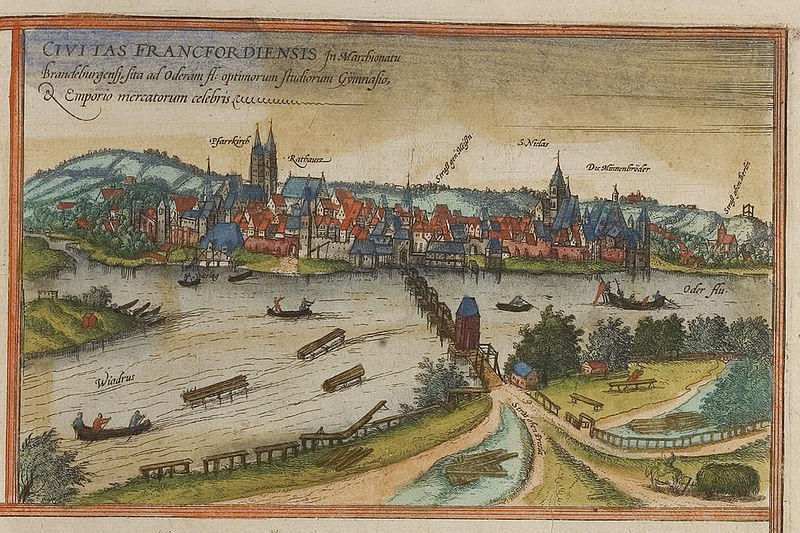 CIVITAS FRANCFORDIENSIS In Marchionatu
Brandeburgens̃. sita ad Oderam fl: optimorum studiorum Gÿmnasio,
& Emporio mercatorum celebris
Pfarrkirch
Rathausz
S. Niclas
Die Minnenbröder
Oder flu.
Wiadrus